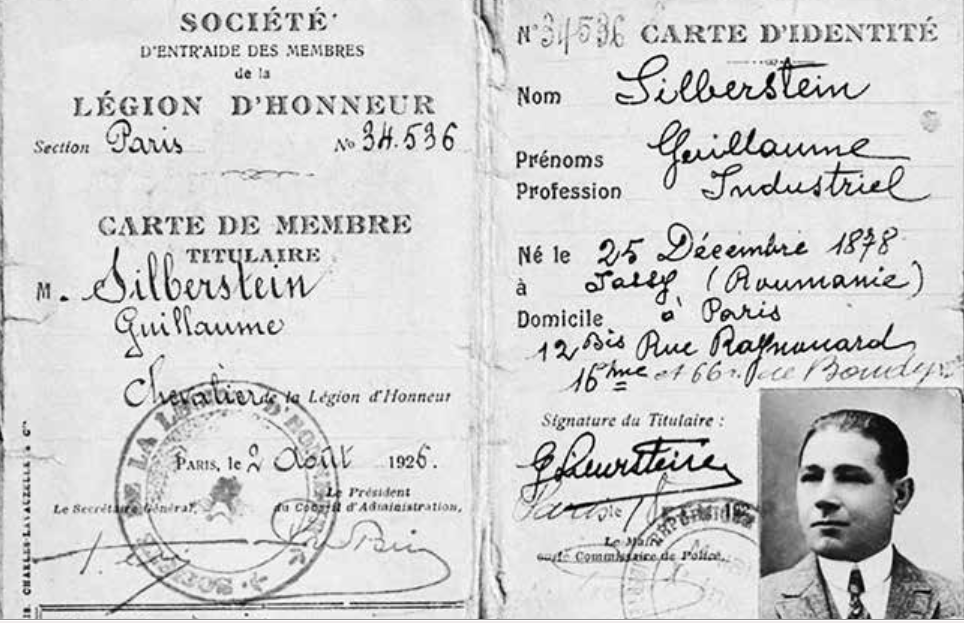 SOCIÉTÉ
D'ENTR'AIDE DES MEMBRES
de la
LÉGION D'HONNEUR
Section Paris No 34.536
CARTE DE MEMBRE
TITULAIRE
M. Silberstein
Guillaume
Chevalier de la Légion d'Honneur
PARIS, le 2 Août 1926.
Le Secrétaire Général,
Le Président
du Conseil d'Administration,
N° 34536 CARTE D'IDENTITÉ
Nom Silberstein
Prénoms Guillaume
Profession Industriel
Né le 25 Décembre 1878
à Jassy (Roumanie)
Domicile à Paris
12 Bis Rue Raynouard
16ème et 66 rue de
Signature du Titulaire :
Paris le
Le Maire
ou le Commissaire de Police,
CHARLES-LAVAUZELLE & Cie